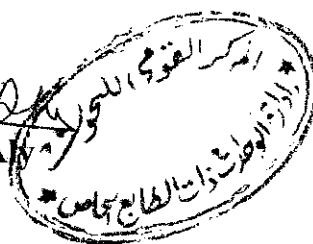 المركز القومي للبحوث
إدارة الوحدات ذات الطابع الخاص